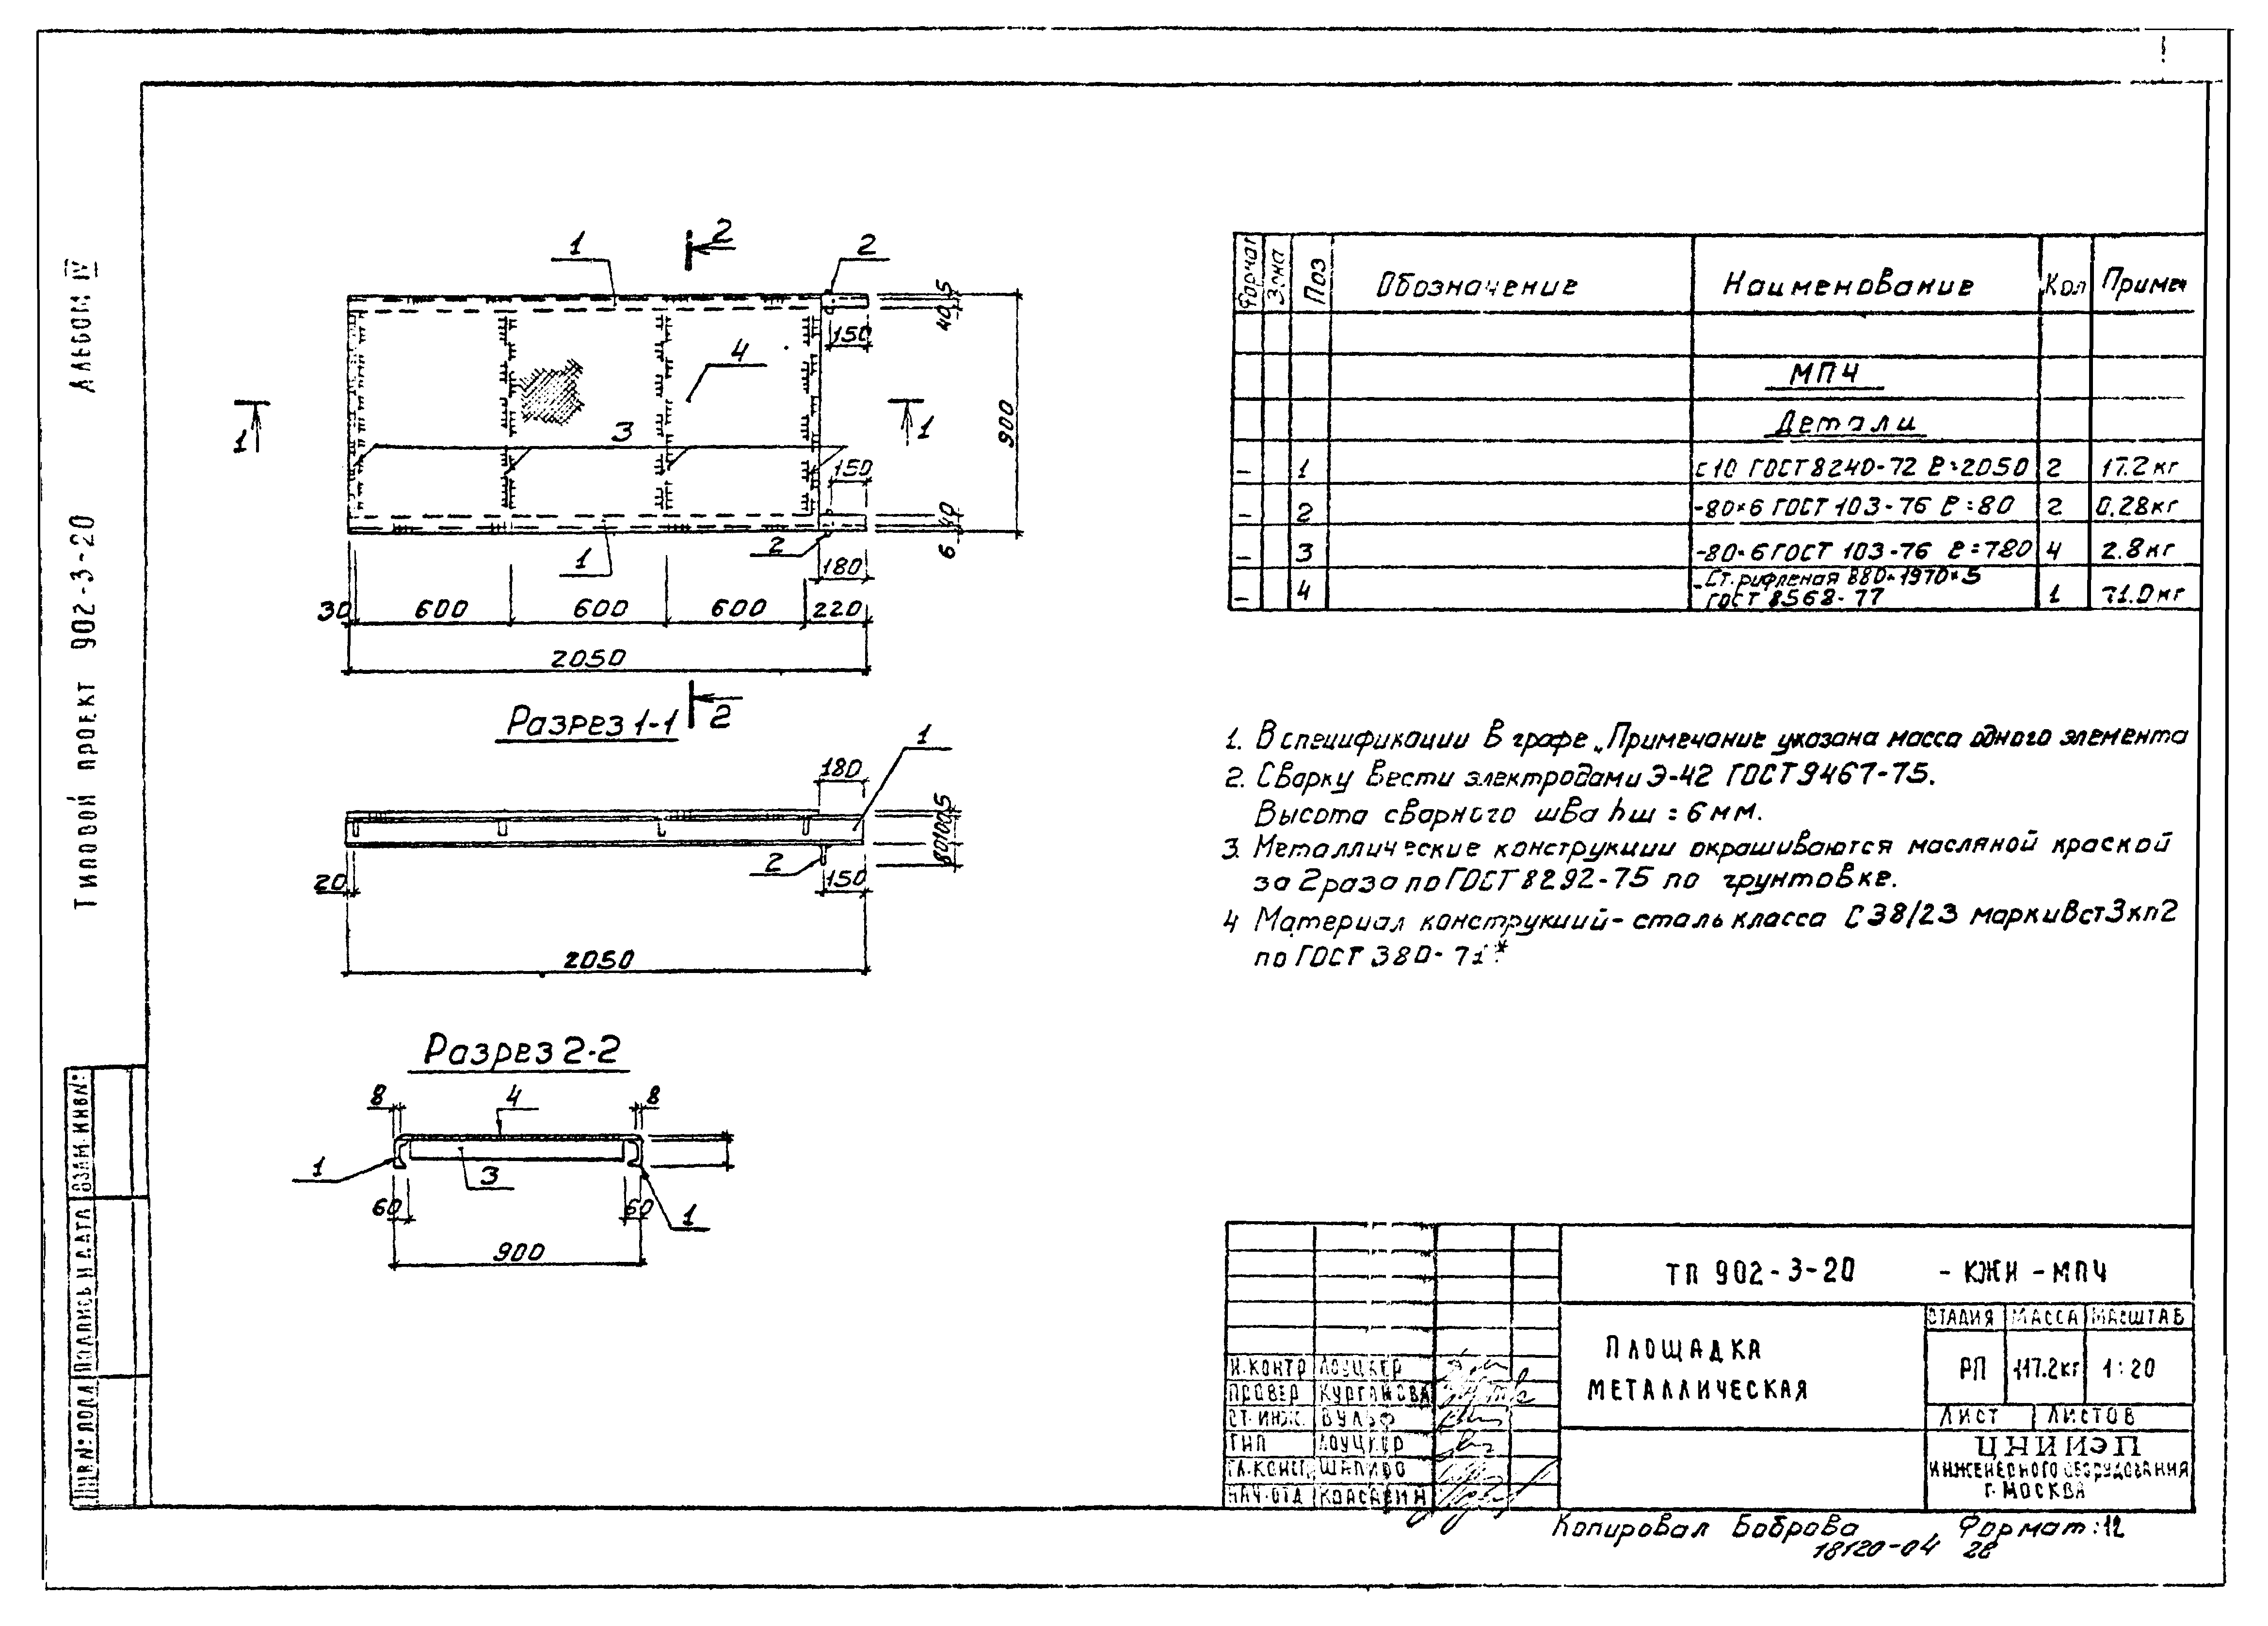 Типовой проект 902-3-20 Альбом IV
1
2
2
5
40
150
4
1
1
3
900
150
40
6
1
2
180
30
600
600
600
220
2050
2
Разрез 1-1
1
180
5
100
80
2
20
150
2050
Разрез 2-2
8
4
8
1
3
1
60
60
900
Формат Зона Поз Обозначение Наименование Кол Примеч
МПЧ
Детали
– 1 С10 ГОСТ 8240-72 ℓ=2050 2 17.2кг
– 2 -80×6 ГОСТ 103-76 ℓ=80 2 0.28кг
– 3 -80×6 ГОСТ 103-76 ℓ=780 4 2.8кг
-Ст. рифленая 880×1970×5
– 4 ГОСТ 8568-77 1 71.0кг
1. В спецификации в графе „Примечание указана масса одного элемента
2. Сварку вести электродами Э-42 ГОСТ 9467-75.
Высота сварного шва hш = 6мм.
3. Металлические конструкции окрашиваются масляной краской
за 2 раза по ГОСТ 8292-75 по грунтовке.
4 Материал конструкций - сталь класса С 38/23 марки Вст3кп2
по ГОСТ 380-71*.
ТП 902-3-20 -КЖИ -МПЧ
Площадка
металлическая
Стадия Масса Масштаб
РП 117.2кг 1:20
Лист Листов
ЦНИИЭП
инженерного оборудования
г. Москва
Н.контр Лоуцкер
Провер Курганова
Ст. инж. Вульф
ГИП Лоуцкер
Гл.конст Шапиро
Нач.отд Красавин
Взам. инв.№
Подпись и дата
Инв.№ подл
Копировал Боброва Формат: 12
18120-04 28